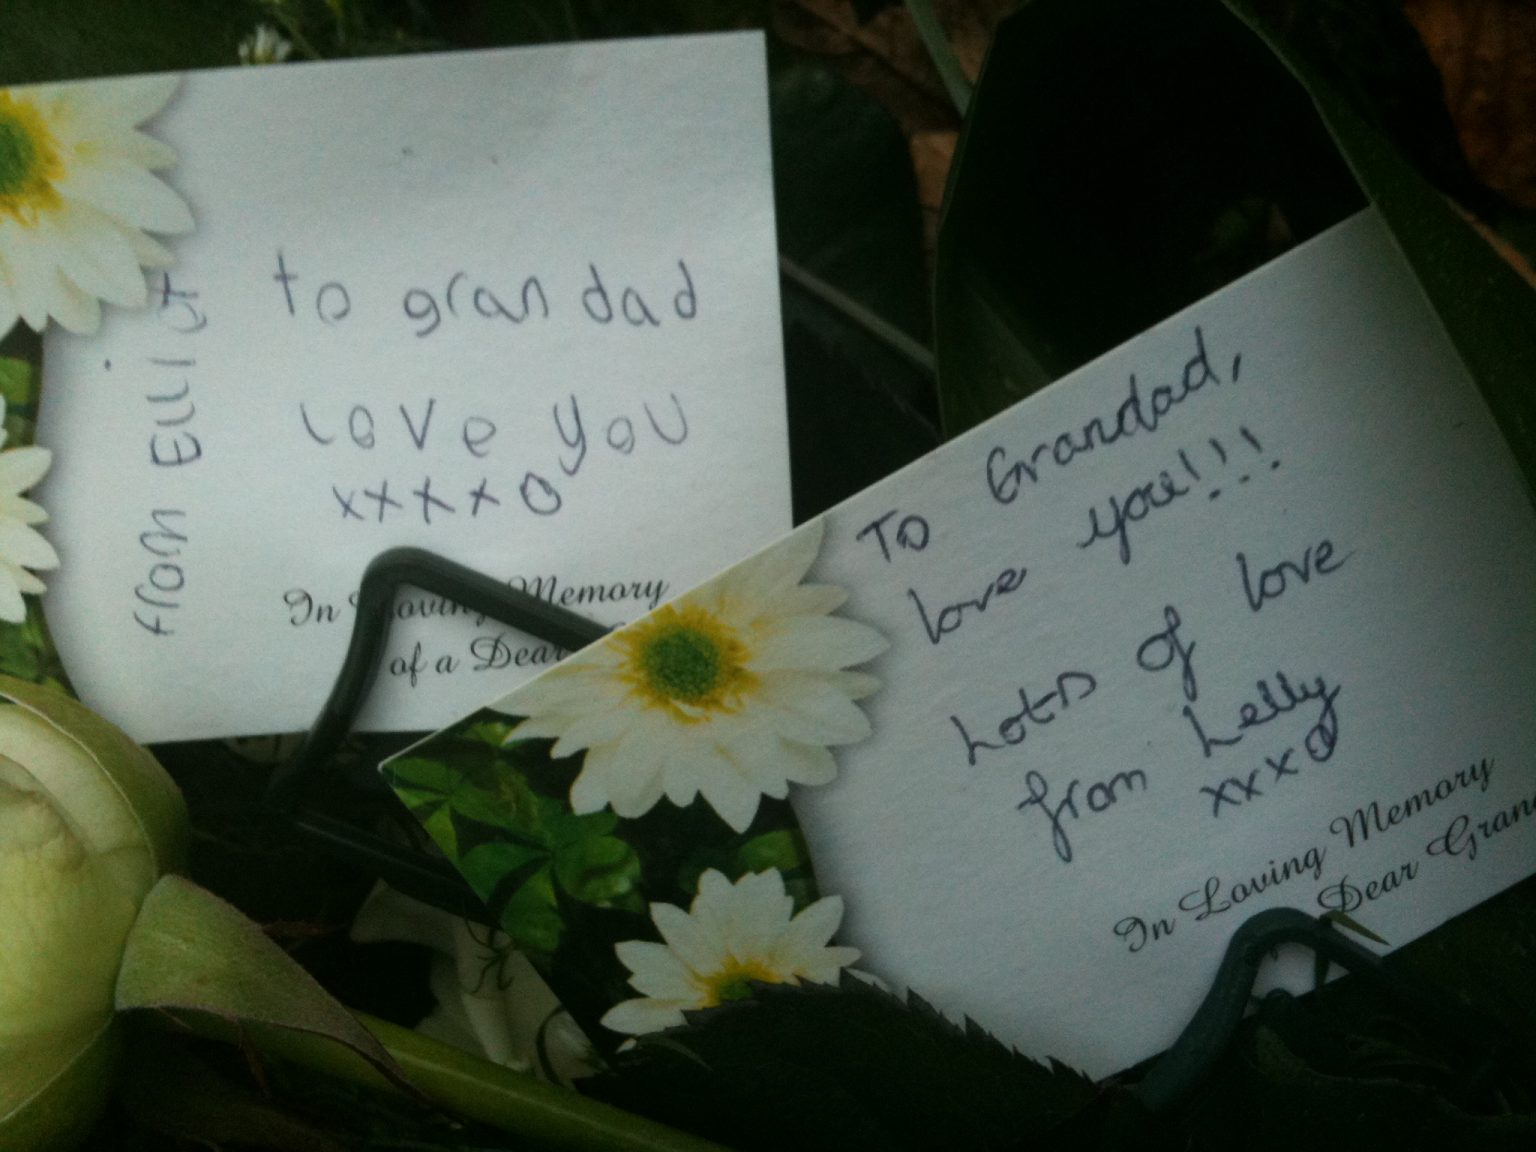 to grandad
Love you
xxxxo
from Elliot
In Loving Memory
of a Dear
To Grandad,
love you!!!
Lots of love
from Lelly
xxxo
In Loving Memory
Dear Grand